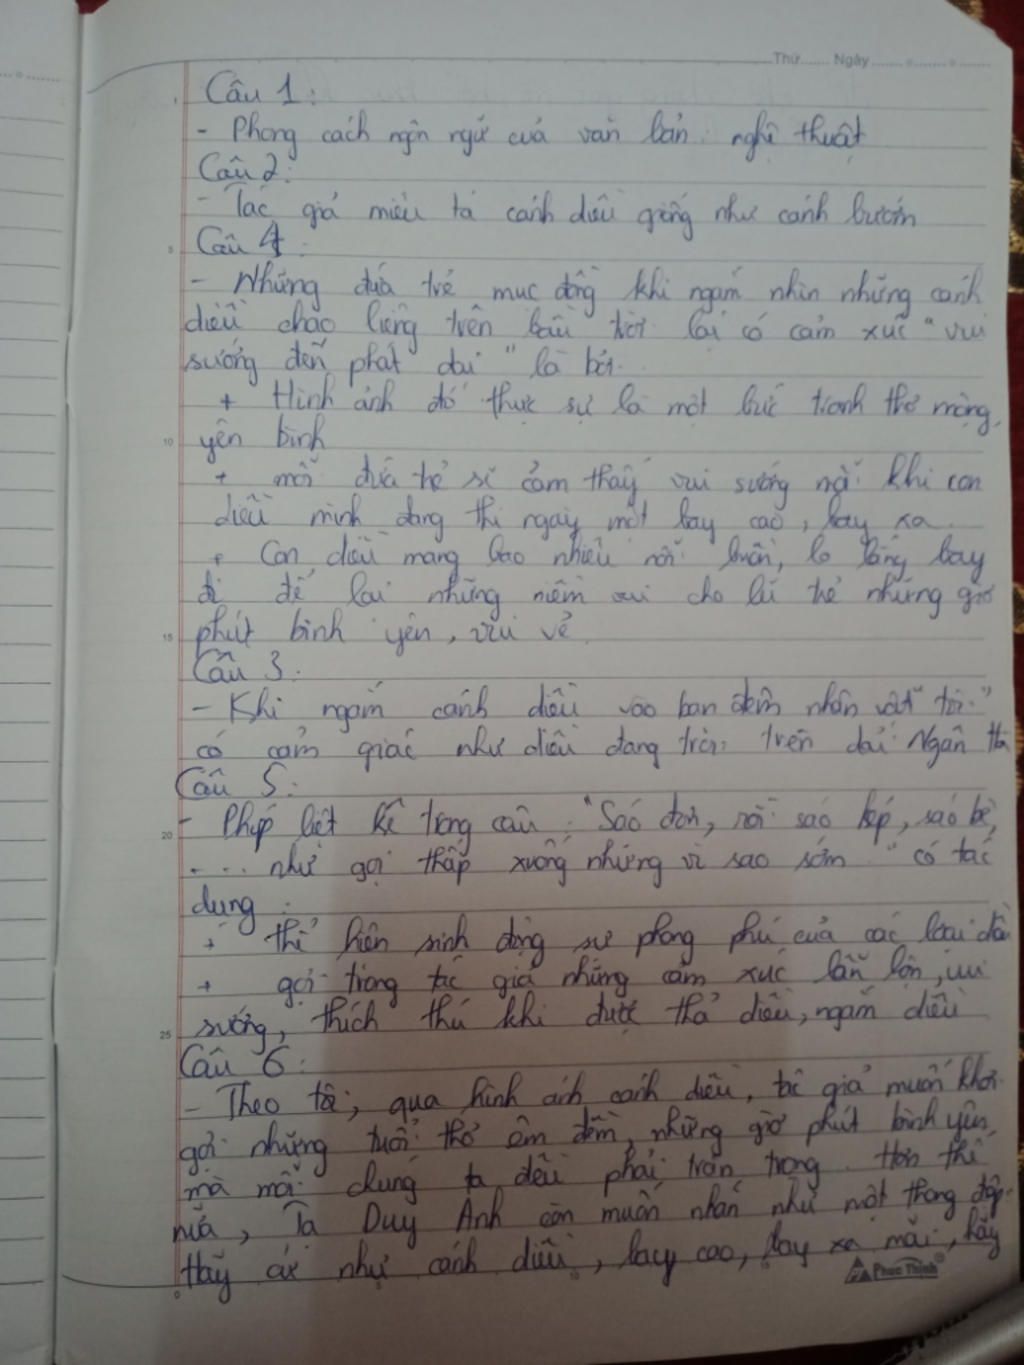 Thứ ...... Ngày ......
Câu 1:
- Phong cách ngôn ngữ của văn bản: nghệ thuật
Câu 2:
- Tác giả miêu tả cánh diều giống như cánh bướm
5
Câu 4:
- Những đứa trẻ mục đồng khi ngắm nhìn những cánh
diều chao liệng trên bầu trời lại có cảm xúc "vui
sướng đến phát dại" là bởi:
+ Hình ảnh đó thực sự là một bức tranh thơ mộng,
10 yên bình
+ mỗi đứa trẻ sẽ cảm thấy vui sướng khi con
diều mình đang thi ngày một bay cao, bay xa.
+ Con diều mang bao nhiêu nỗi buồn, lo lắng bay
đi để lại những niềm vui cho lũ trẻ những giờ
15 phút bình yên, vui vẻ.
Câu 3:
- Khi ngắm cánh diều vào ban đêm nhân vật "tôi"
có cảm giác như diều đang trôi trên dải Ngân Hà
Câu 5:
20 - Phép liệt kê trong câu: "Sáo đơn, rồi sáo kép, sáo bè,
.... như gọi thấp xuống những vì sao sớm" có tác
dụng:
+ thể hiện sinh động sự phong phú của các loại
+ gợi trong tác giả những cảm xúc lẫn lộn, vui
25 sướng, thích thú khi được thả diều, ngắm diều
Câu 6:
- Theo tôi, qua hình ảnh cánh diều, tác giả muốn khơi
gợi những tuổi thơ êm đềm, những giờ phút bình yên,
mà mỗi chúng ta đều phải trân trọng. Hơn thế
nữa, Tạ Duy Anh còn muốn nhắn như một thông điệp:
Hãy cứ như cánh diều, bay cao, bay xa mãi, hãy
Phúc Thịnh